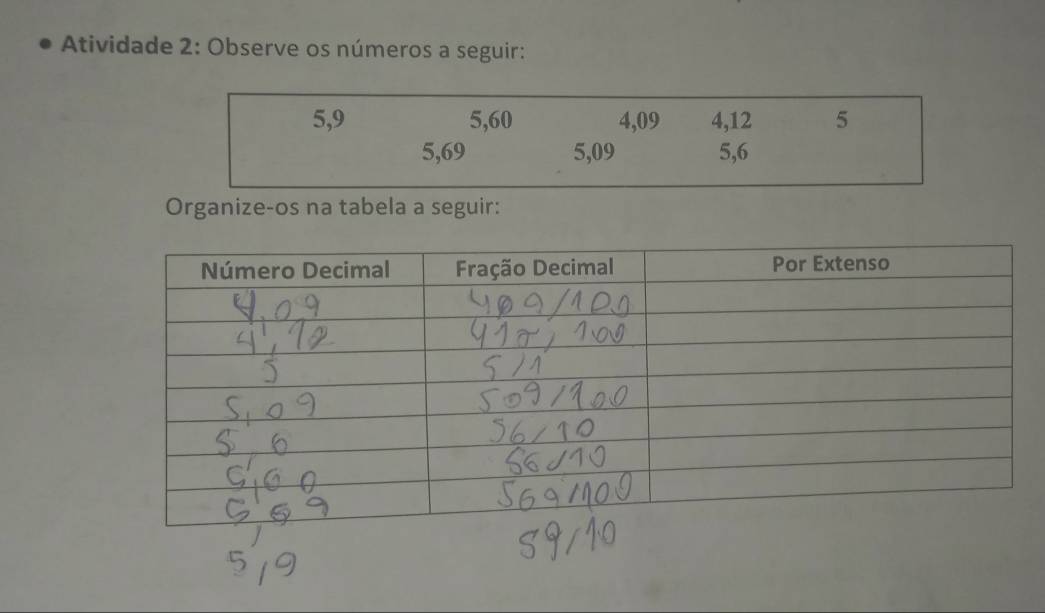 • Atividade 2: Observe os números a seguir:
5,9 5,60 4,09 4,12 5
5,69 5,09 5,6
Organize-os na tabela a seguir:
Número Decimal Fração Decimal Por Extenso
4,09 409/100
4,12 412/100
5 5/1
5,09 509/100
5,6 56/10
5,60 56/10
5,69 569/100
5,9 59/10